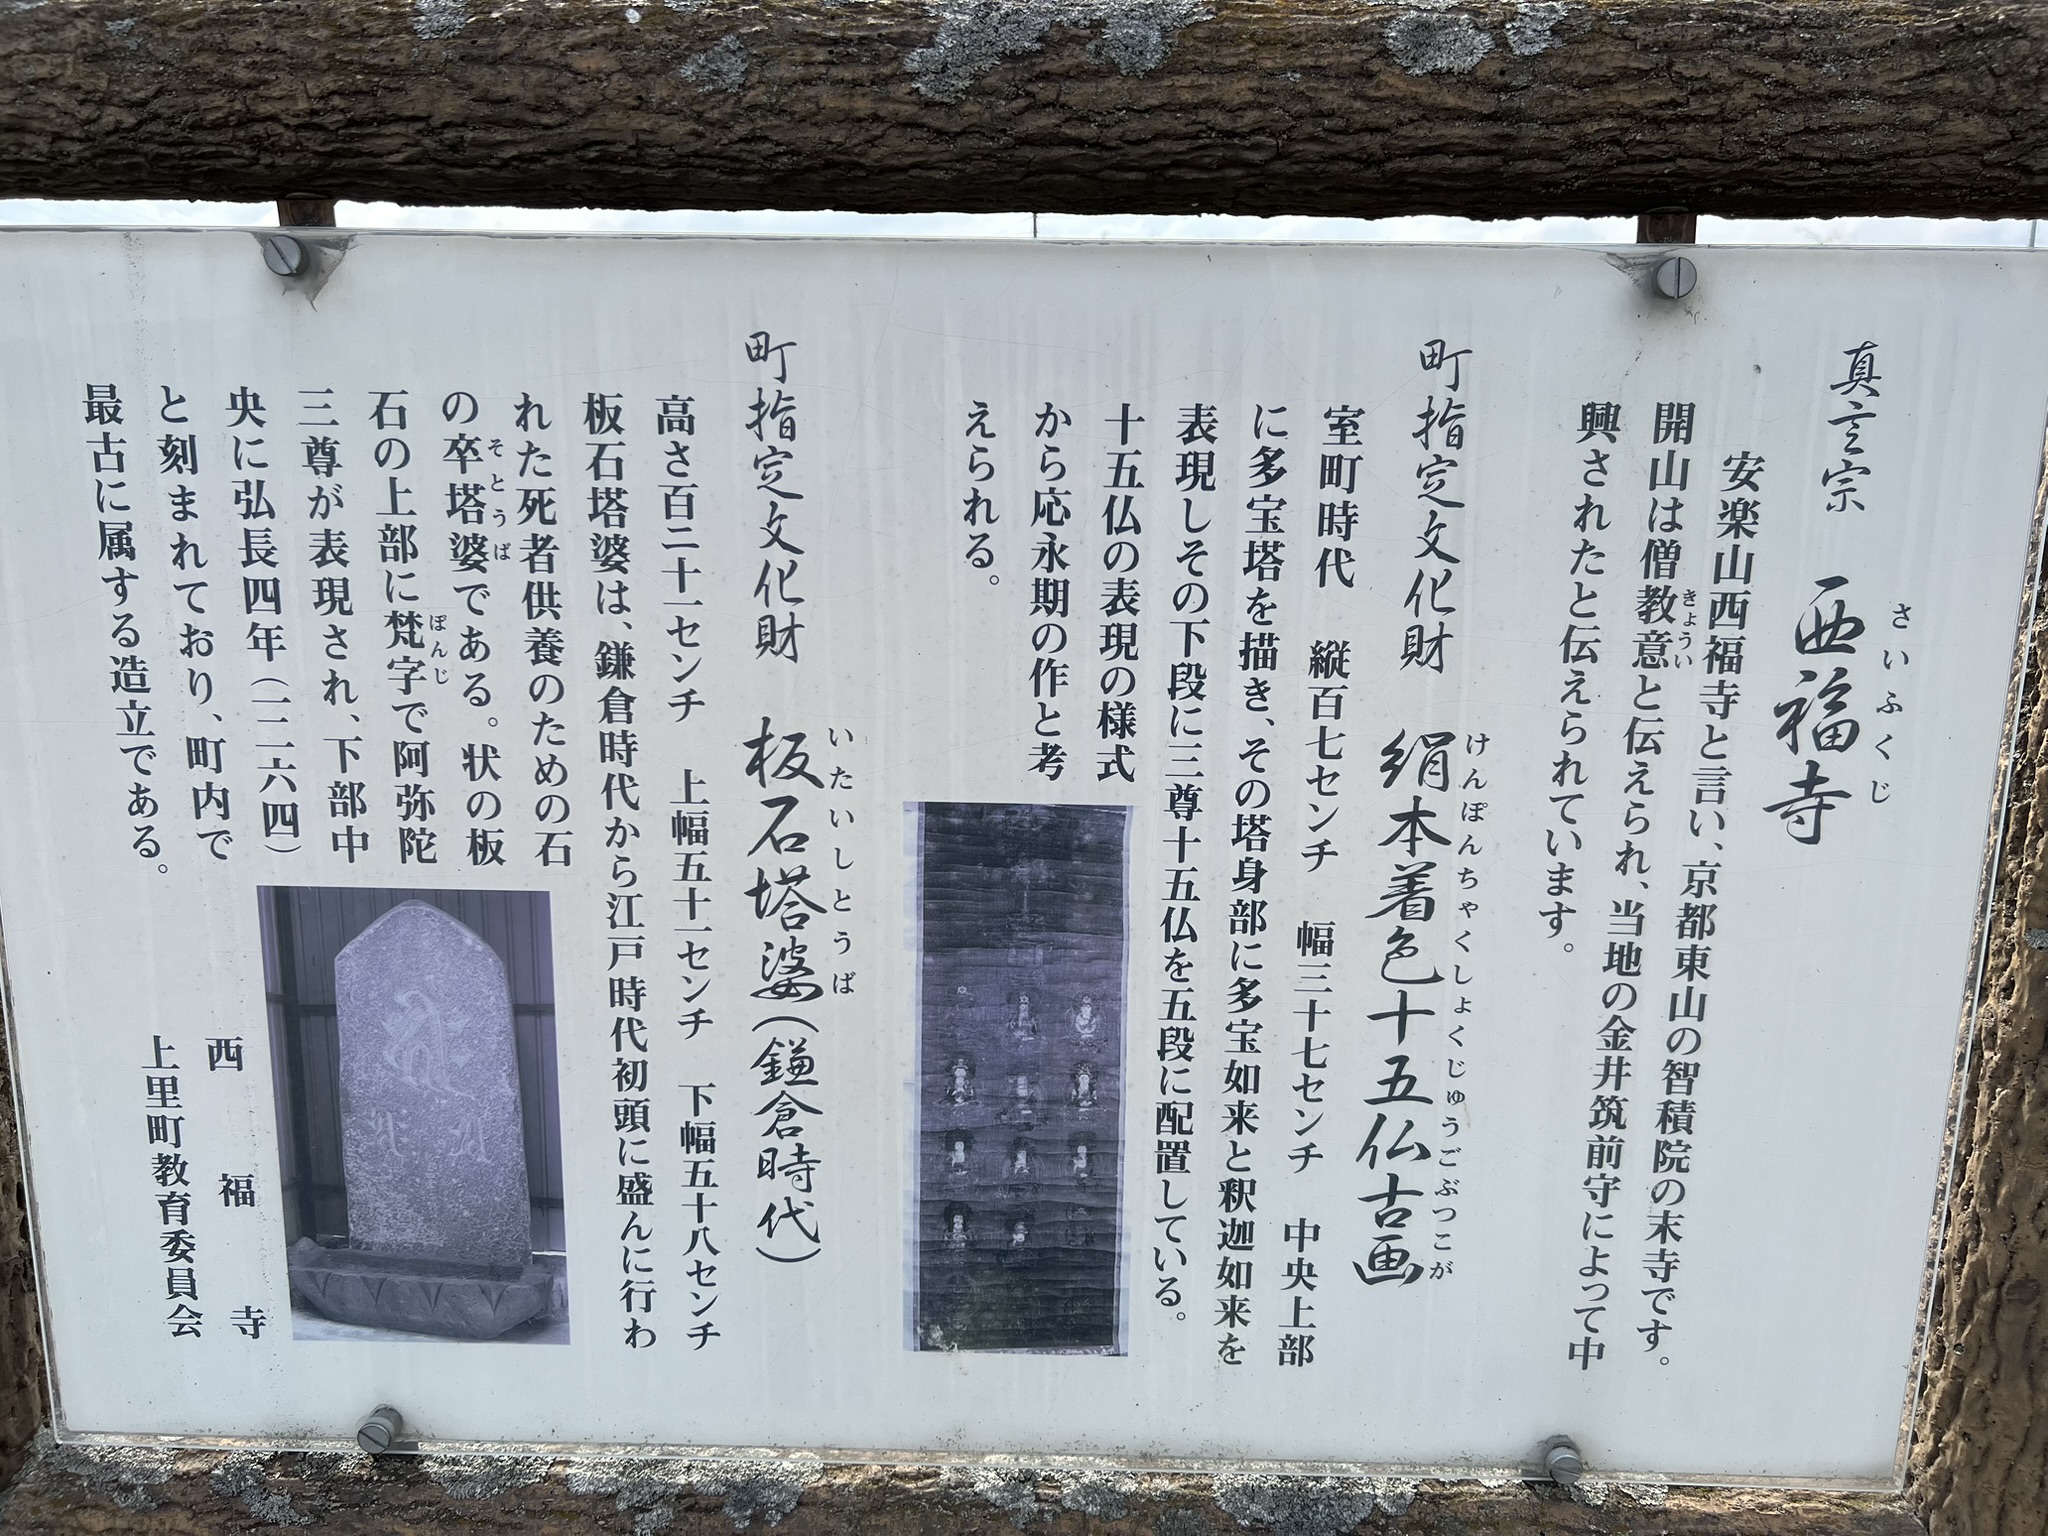 真言宗　西福寺
さいふくじ
安楽山西福寺と言い、京都東山の智積院の末寺です。
開山は僧教意と伝えられ、当地の金井筑前守によって中
きょうい
興されたと伝えられています。
町指定文化財　絹本着色十五仏古画
けんぽんちゃくしょくじゅうごぶつこが
室町時代　縦百七センチ　幅三十七センチ　中央上部
に多宝塔を描き、その塔身部に多宝如来と釈迦如来を
表現しその下段に三尊十五仏を五段に配置している。
十五仏の表現の様式
から応永期の作と考
えられる。
町指定文化財　板石塔婆（鎌倉時代）
いたいしとうば
高さ百二十一センチ　上幅五十一センチ　下幅五十八センチ
板石塔婆は、鎌倉時代から江戸時代初頭に盛んに行わ
れた死者供養のための石
の卒塔婆である。状の板
そとうば
石の上部に梵字で阿弥陀
ぼんじ
三尊が表現され、下部中
央に弘長四年（一二六四）
と刻まれており、町内で
最古に属する造立である。
西福寺
上里町教育委員会